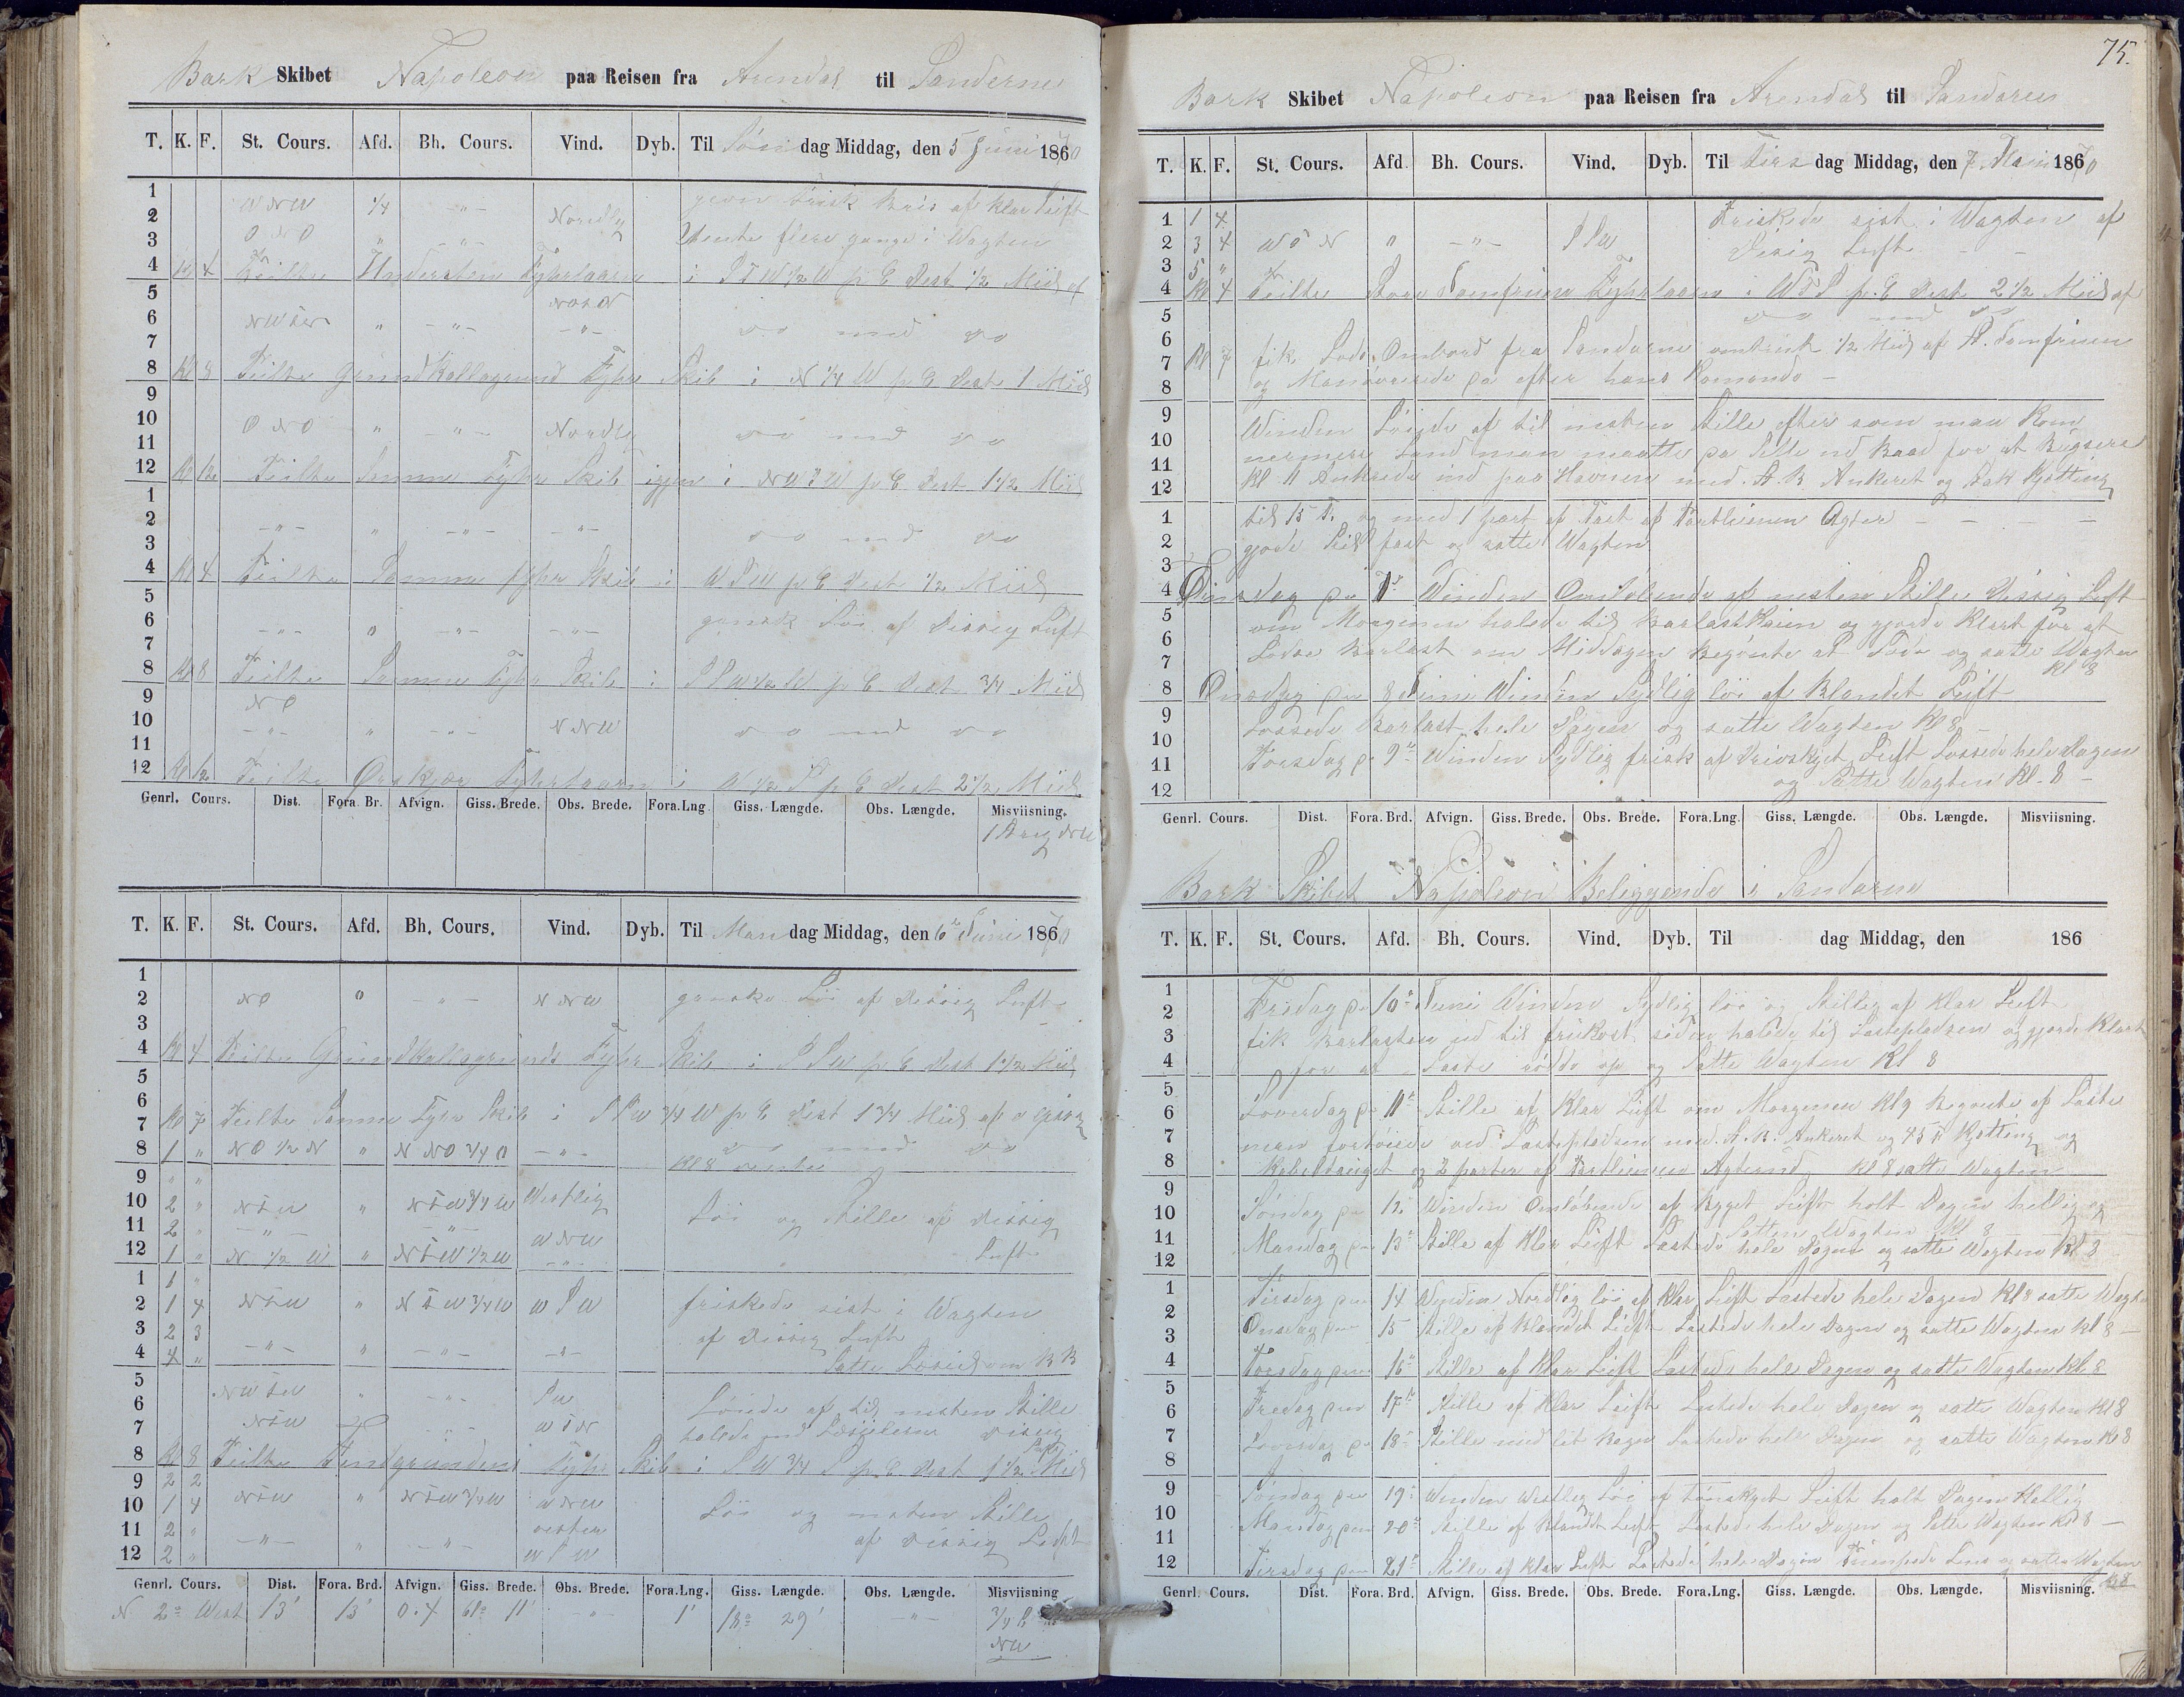 Bark Skibet Napoleon paa Reisen fra Arendal til Sanderne
T. K. F. St. Cours. Afd. Bh. Cours. Vind. Dyb. Til Søn dag Middag, den 5 Juni 1870
1
2 WNW 1/4 -"- Nordlig jevn Frisk Bris af klar Luft
3 ONO " -"- flere gange i Wagten
4 Kl 4 Peilte Understen Fyhrtaarn i S T W 1/2 W pr C Dest 1/2 Miil af
5 NOTN
6 NWTW " -"- -"- do med do
7
8 Kl 8 Peilte Grundkallegrund Fyhr Skib i N 1/4 W pr C Dest 1 Miil
9
10 ONO " -"- Nordlig do med do
11
12 Kl 12 Peilte Samme Fyhr Skib igjen i NWTW pr C Dest 1 1/2 Miil
1
2 -"- " -"- -"- do med do
3
4 Kl 4 Peilte Samme Fyhr Skib i WSW pr C Dest 1/2 Miil
5
6 -"- " -"- -"- ganske Løi af Dissig Luft
7
8 Kl 8 Peilte Samme Fyhr Skib i SSW 1/2 W pr C Dest 3/4 Miil
9 NO
10 -"- " -"- NNW do med do
11
12 Kl 12 Peilte Ørskjær Fyhrtaarn i W 1/2 S pr C Dest 2 1/2 Miil
Genrl. Cours. Dist. Fora. Br. Afvign. Giss. Brede. Obs. Brede. Fora.Lng. Giss. Længde. Obs. Længde. Misviisning.
1 Streg NW
T. K. F. St. Cours. Afd. Bh. Cours. Vind. Dyb. Til Man dag Middag, den 6te Juni 1870
1
2 NO " -"- NNW ganske Løi af Dissig Luft
3
4 Kl 4 Peilte Grundkallegrunds Fyhr Skib i SSW pr C Dest 1 1/2 Miil
5
6
7 Kl 7 Peilte Samme Fyhr Skib i SSW 3/4 W pr C Dest 1 3/4 Miil af
8 1 " NO 1/2 N " NNO 3/4 O -"- do med do
Kl 8 vente
9 " "
10 2 " NTW " NTW 3/4 W Westlig Løi og Stille af Dissig
11 2 " -"- -"- WNW
12 1 " N 1/2 W " NTW 1/2 W -"- Luft
1 1 "
2 1 4 NTW " NTW 3/4 W WSW friskede sist i Wagten
3 2 3 af Dissig Luft
4 4 " -"- " -"- -"- Satte
5
6 NWTW " -"- SW Løiede af til nesten Stille
7 NTW -"- WTN halede ned Læseilerne Dissig
8 Kl 8 Peilte Finngrundens Fyhr Skib i SW 3/4 S pr C Dest 1 1/2 Miil
9 2 2
10 1 4 NTW " NTW 3/4 W WNW Løi og nesten Stille
11 2 " vester
12 2 " -"- " -"- WSW af Dissig Luft
Genrl. Cours. Dist. Fora. Brd. Afvign. Giss. Brede. Obs. Brede. Fora.Lng. Giss. Længde. Obs. Længde. Misviisning
N 2° West 13' 13' 0.4 61° 11' -"- 1' 18° 29' -"- 3/4
NW
75.
Bark Skibet Napoleon paa Reisen fra Arendal til Sandarne
T. K. F. St. Cours. Afd. Bh. Cours. Vind. Dyb. Til Tirs dag Middag, den 7 Juni 1870
1 1 4 Friskede sist i Wagten af
2 3 4 WTN " -"- SSW Disig Luft
3 5 "
4 Kl 4 Peilte Store Jomfruens Fyhrtaarn i WTS pr. C Dest 2 1/2 Miil af
5 do med do
6
7 Kl 7 fik Lods Ombord fra Sandarne omtrent 1/2 Miil af St. Jomfruen
8 og Manøvrerede pa efter hans Komando –
9 Winden Løiede af til nesten Stille efter som man kom
10 nermere Land man maatte pa Sille ud Baad for at Bugsere
11 Kl. 11 Ankrede ind paa Havnen med St. B. Ankeret og Bak Kjetting
12
1 til 15 F. og med 1 part af Tast af Agter – – –
2 gjorde Seil fast og satte Wagten
3
4 Tirsdag pr. Winden Omløbende af nesten Stille Dissig Luft
5 om Morgenen halede til Barlastkaien og gjorde klart for at
6 Losse Barlast om Middagen Begynte at Losse og satte Wagten
7 Kl 8
8 Onsdag pr 8 Juni Winden Sydlig løi af Blandet Luft
9 Lossede Barlast hele Dagen og satte Wagten Kl 8
10 Torsdag pr 9te Winden Sydlig frisk af Drivskyet Luft Lossede hele Dagen
11 og Satte Wagten Kl. 8 –
12
Genrl. Cours. Dist. Fora. Brd. Afvign. Giss. Brede. Obs. Brede. Fora.Lng. Giss. Længde. Obs. Længde. Misviisning.
Bark Skibet Napoleon Beliggende i Sandarne
T. K. F. St. Cours. Afd. Bh. Cours. Vind. Dyb. Til dag Middag, den 186
1
2 Fredag pr 10te Juni Winden Sydlig løi og Stille af klar Luft
3 fik Barlasten ud til frukost siden halede til Lastepladsen og gjorde klart
4 for at Laste og Satte Wagten Kl 8
5
6 Løverdag pr 11te Stille af Klar Luft om Morgenen Kl 9 Begynte at Laste
7 men fortøiede ved Lastepladsen med St. B. Ankeret og 45 F Kjetting og
8 Kabeltauget og 2 parter af Agterud Kl 8 satte Wagten
9
10 Søndag pr 12. Winden Omløbende af Bygget Luft holt Dagen hellig og
Satten Wagten Kl 8
11 Mandag pr 13te Stille af Klar Luft Lastede hele Dagen og satte Wagten Kl 8
12
1 Tirsdag pr 14 Winden Nordlig løi af klar Luft Lastede hele Dagen Kl 8 satte Wagten
2 Onsdag pr 15 Stille af Blandet Luft Lastede hele Dagen og satte Wagten Kl 8 –
3
4 Torsdag pr 16te Stille af Klar Luft Lastede hele Dagen og satte Wagten Kl 8
5
6 Fredag pr 17te Stille af Klar Luft Lastede hele Dagen og satte Wagten Kl 8
7 Løverdag pr 18te Stille med lit Regn Lastede hele Dagen og satte Wagten Kl 8
8
9 Søndag pr 19te Winden Westlig Løi af Tønskyet Luft holt Dagen Hellig
10 Mandag pr 20te Stille af Blandet Luft Lastede hele Dagen og Satte Wagten Kl 8 –
11
12 Tirsdag pr 21te Stille af klar Luft Lastede hele Dagen Pumpede Lens og satte Wagten
Kl 8
Genrl. Cours. Dist. Fora. Brd. Afvign. Giss. Brede. Obs. Brede. Fora.Lng. Giss. Længde. Obs. Længde. Misviisning.